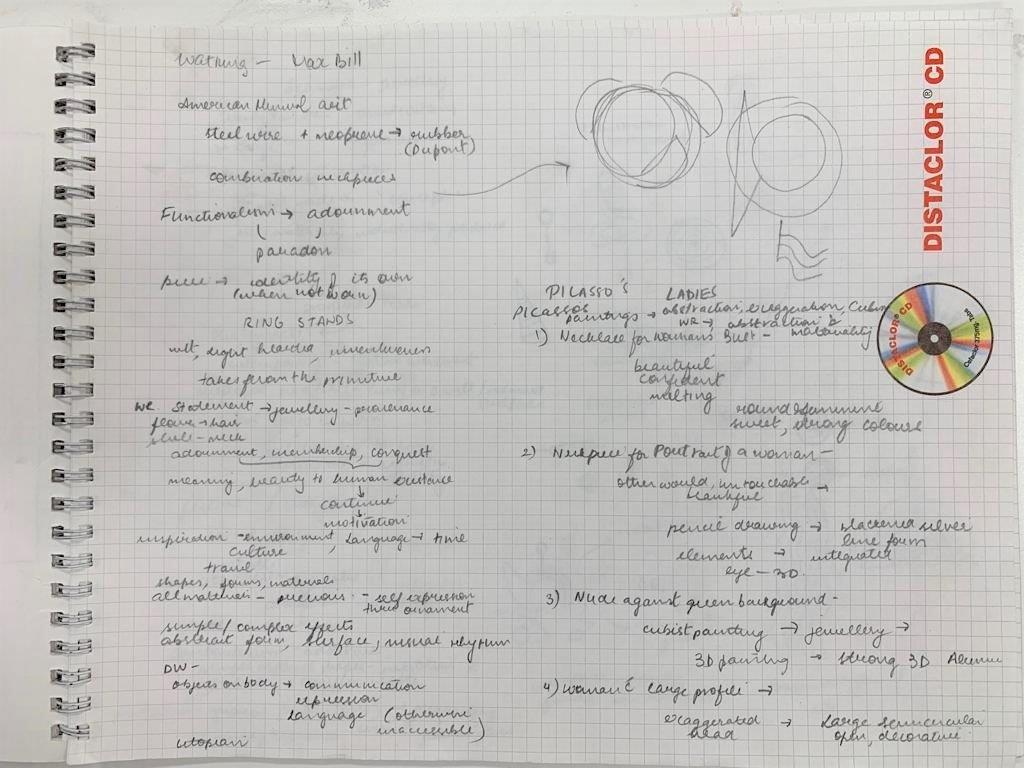 Watkins – Max Bill
American Minimal art
Steel wire + neoprene → rubber
(Dupont)
combination neckpieces
Functionalism → adournment
paradox
piece → identity of its own
(when not worn)
RING STANDS
wit, light hearted, inventiveness
takes from the primitive
WR. Statement → jewellery – provenance
flower → hair
shell – neck
adournment, membership, conquest
meaning, beauty to human existence
continue
motivation
inspiration – environment, language → time
culture
travel
shapes, forms, materials
all materials – precious – self expression
through ornament
simple/complex effects
abstract form, surface, visual rhythm
DW –
objects on body → communication
expression
language (otherwise
inaccessible)
utopian
PICASSO'S LADIES
PICASSOS
paintings → abstraction, exaggeration, Cubism
WR → abstraction & materiality
1) Necklace for Womans Bust –
beautiful
confident
melting
round & feminine
sweet, strong colours
2) Neckpiece for Portrait of a woman –
otherworld, untouchable →
pencil drawing → blackened silver
line form
elements → integrated
eye – 3D.
3) Nude against green background –
cubist painting → jewellery →
3D painting → strong 3D
4) woman & large profile →
exaggerated → Large semicircular
head open, decorative
DISTACLOR® CD
DISTACLOR® CD
Cefaclor 375mg Tabs